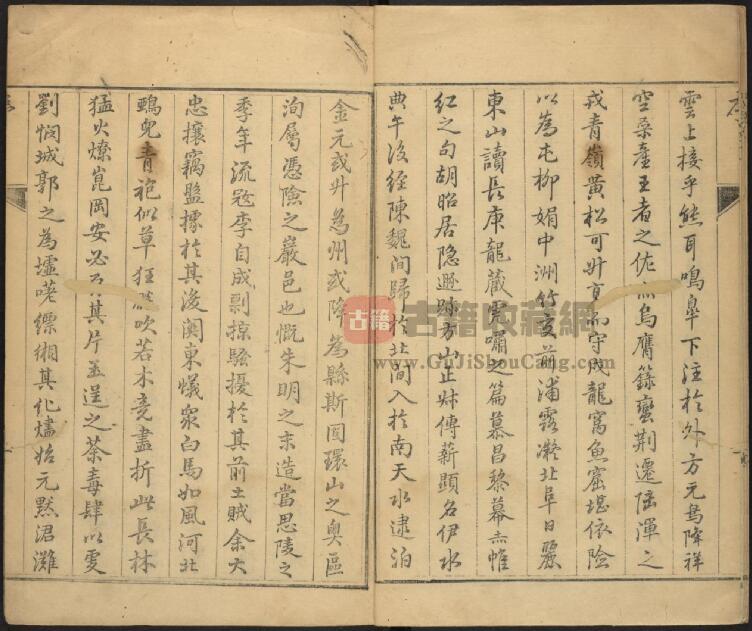 雲上接乎熊耳鳴皋下注於外方元鳥降祥
空桑產王者之佐烏膺籙蠻荆遷陸渾之
戎青嶺黃松可升而守戍龍窩魚窟堪依險
以為屯柳娟中洲竹交前浦露凝北阜日麗
東山讀長庚龍藏虎嘯之篇慕昌黎幕赤帷
紅之句胡昭居隐遯跡方山正姝傳薪顕名伊水
典午後經陳魏間歸於北間入於南天水逮泊
金元或升為州或降為縣斯固環山之奥區
洵屬憑險之巖邑也慨朱明之末造當思陵之
季年流寇李自成剽掠騷擾於其前土賊余大
忠攘竊盤據於其後関東蟻聚白馬如風河北
鴟兒青袍似草狂吹若木竞盡折此長林
猛火燎崑岡安必其片玉逞之荼毒肆以虔
劉悯城郭之為墟嗟縹緗其化燼始元黙涒灘
古籍
古籍收藏網
www.GuJiShouCang.com